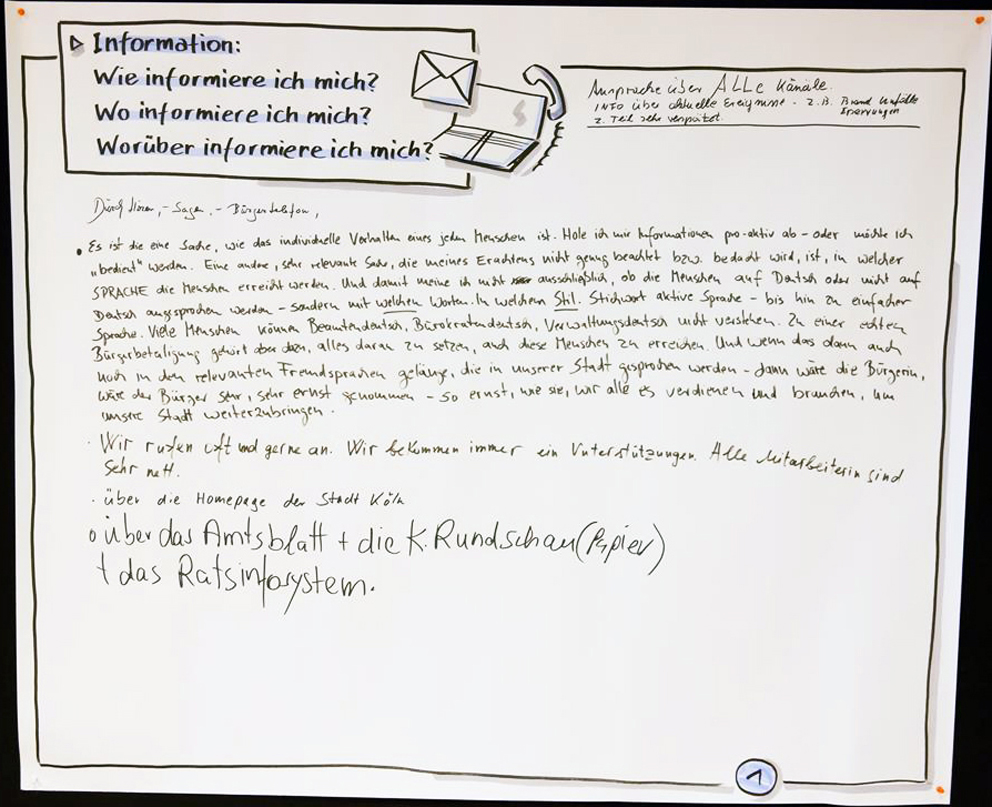 Information:
Wie informiere ich mich?
Wo informiere ich mich?
Worüber informiere ich mich?
Ansprache über ALLE Kanäle.
INFO über aktuelle Ereignisse - z.B. Brand Unfälle
z. Teil sehr verspätet.
Durch Hören, - Sagen, - Bürgertelefon,
• Es ist die eine Sache, wie das individuelle Verhalten eines jeden Menschen ist. Hole ich mir Informationen pro-aktiv ab - oder möchte ich
„bedient" werden. Eine andere, sehr relevante Sache, die meines Erachtens nicht genug beachtet bzw. bedacht wird, ist, in welcher
SPRACHE die Menschen erreicht werden. Und damit meine ich nicht ausschließlich, ob die Menschen auf Deutsch oder nicht auf
Deutsch angesprochen werden - sondern mit welchen Worten. In welchem Stil. Stichwort aktive Sprache - bis hin zu einfacher
Sprache. Viele Menschen können Beamtendeutsch, Bürokratendeutsch, Verwaltungsdeutsch nicht verstehen. Zu einer echten
Bürgerbeteiligung gehört aber dazu, alles daran zu setzen, auch diese Menschen zu erreichen. Und wenn das dann auch
noch in den relevanten Fremdsprachen gelänge, die in unserer Stadt gesprochen werden - dann wäre die Bürgerin,
wäre der Bürger sehr, sehr ernst genommen - so ernst, wie sie, wir alle es verdienen und brauchen, um
unsere Stadt weiterzubringen.
· Wir rufen oft und gerne an. Wir bekommen immer ein Unterstützungen. Alle Mitarbeiterin sind
Sehr nett.
· über die Homepage der Stadt Köln
o über das Amtsblatt + die K. Rundschau (Papier)
+ das Ratsinfosystem.
1